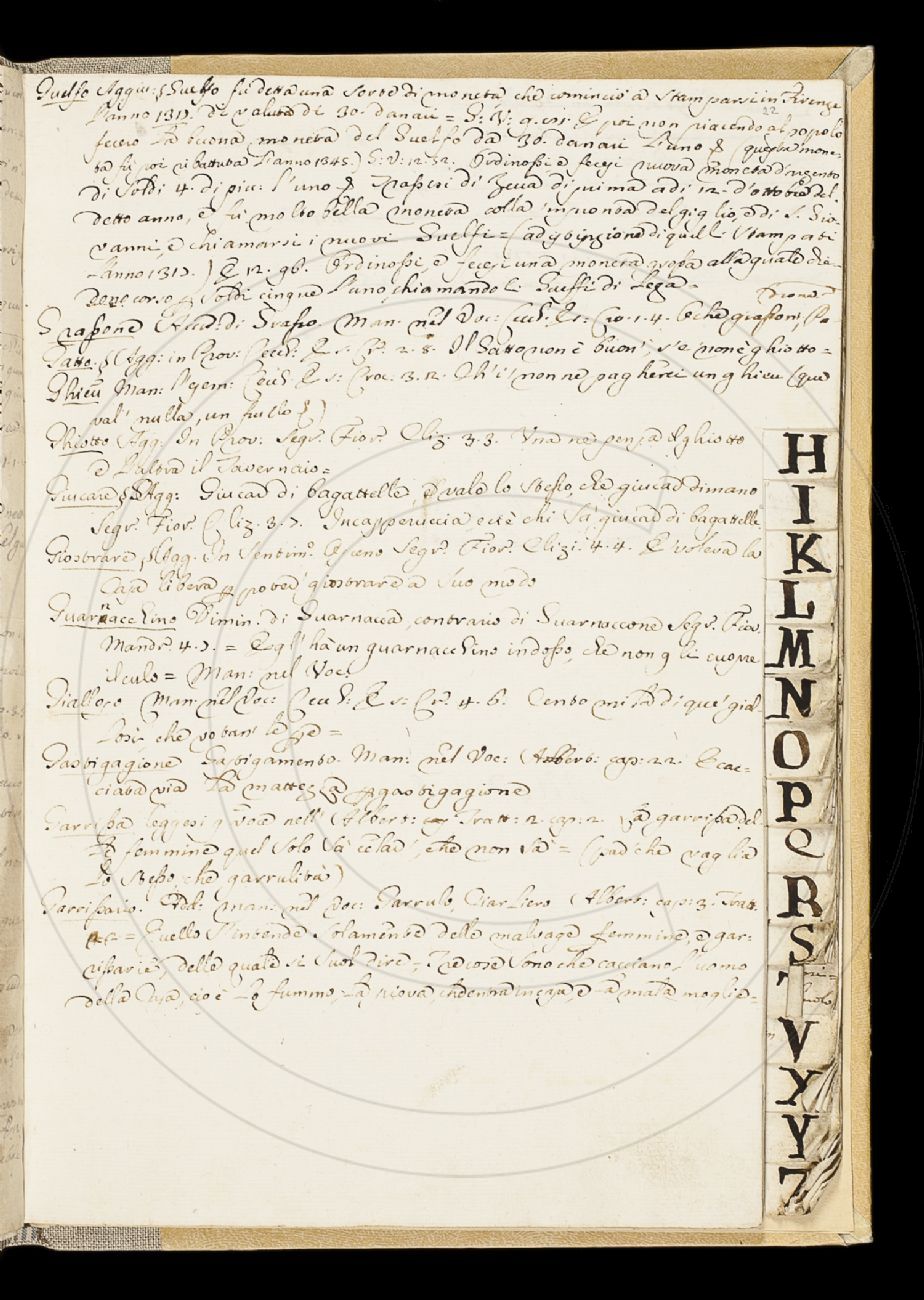 Guelfo Aggiu: § Guelfo fù detta una sorte di moneta che cominciò à stamparsi in Firenze
l'anno 1317. di valuta di 30. danari = G: V: 9. E poi non piacendo al popolo
22
fecero la buona moneta del Guelfo da 30. danari l'uno (questa mone-
ta fù poi ributtata l'anno 1345.) G: V: 12. 52. Ordinossi e fecesi nuova moneta d'argento
di soldi 4. di piu: l'uno di di prima adi 12. d'ottobre del
detto anno, e fù molto bella moneta colla 'mpronta del giglio, e di S. Gio-
vanni, e chiamarsi i nuovi Guelfi = (adistinzione di quelli stampati
l'anno 1317.) E 12. 9b. Ordinossi, e fecesi una moneta grossa alla quale die-
dero corso soldi cinque l'uno, chiamandoli Guelfi di Lega =
Grassone Man. nel Voc: Cecch. 1. 4. che grasson',
Gatto. § Agg: in Prov: Cecch. 2. 8. Il Gatto non è buon', s'e' non è ghiotto =
Ghieu Man: Cecch. 3. 2. Ch'i' non ne pagherei un ghieu (que
val' nulla, un frullo)
Ghiotto (Agg. In Prov: Segr. Fior. Cliz. 3. 3. Una ne pensa il ghiotto
e l'altra il Tavernaio =
Giucare § Agg: Giucar di bagattelle, e vale lo stesso, che giucar di mano
Segr. Fior. Cliz. 3. 7. Incapperuccia ecc' è chi sà giucar di bagattelle.
Giostrare, § Agg. In sentim.o Segr. Fior. Clizi. 4. 4. E' voleva la
Casa libera p poter giostrare a suo modo
Guarnacchino Dimin. di Guarnacca, contrario di Guarnaccone Segr. Fior.
Mandr. 4. 7. = Egl' hà un guarnacchino indosso, che non gli cuopre
il culo = Man: nel Voc:
Gialloso Man: nel Voc: Cecch. 4. 6. Cento mila di que' gial-
losi, che votan' le
Gastigagione Gastigamento. Man: nel Voc: (Albert: cap: 22. E cac-
ciata via la mattezza p gastigagione
Garrissa leggesi q voce nell' (Albert: Tratt: 2. cap: 2. La garrissa del-
le femmine quel solo sà celar', che non sà = (par che vaglia
lo stesso, che garrulità)
Garrissaio. Add: man: nel Voc: Garrulo, Ciarliero (Albert: cap: 3. Tratt.
2 = Quello s'intende solamente delle malvage femmine, e gar-
rissarie, delle quale si suol dire =, Tre cose sono che cacciano l'uomo
della Casa, cioè lo fummo, la piova chdentra in casa, e la mala moglie =
H
I
K
L
M
N
O
P
Q
R
S
T
V
X
Y
Z